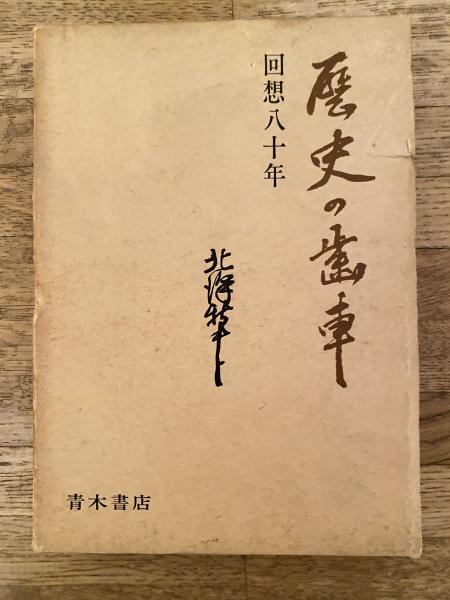 歴史の歯車
回想八十年
北沢新次郎
青木書店